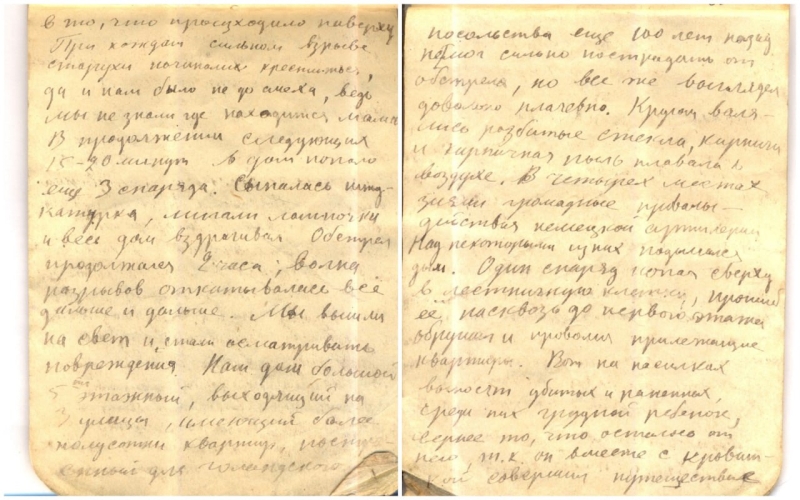 в то, что происходило наверху
При каждом сильном взрыве
старухи начинали креститься,
да и нам было не до смеха, ведь
мы не знали где находится мама
В продолжении следующих
15-20 минут в дом попало
ещё 3 снаряда. Сыпалась шту-
катурка, мигали лампочки
и весь дом вздрагивал Обстрел
продолжался 2 часа; волна
разрывов откатывалась всё
дальше и дальше. Мы вышли
на свет и стали осматривать
повреждения. Наш дом большой
5 этажный, выходящий на
3 улицы, имеющий более
полусотни квартир, постро-
енный для голландского
посольства ещё 100 лет назад
не мог сильно пострадать от
обстрела, но все же выглядел
довольно плачевно. Кругом валя-
лись разбитые стекла, кирпичи
и кирпичная пыль плавала в
воздухе. В четырех местах
зияли громадные провалы -
действия немецкой артиллерии
Над некоторыми из них подымался
дым. Один снаряд попал сверху
в лестничную клетку, прошил
её насквозь до первого этажа
обрушил и провалил прилежащие
квартиры. Вот на носилках
выносят убитых и раненных,
среди них грудной ребенок,
вернее то, что осталось от
него, т.к. он вместе с кроват-
кой совершил путешествие